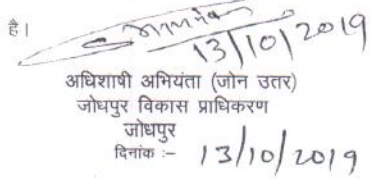 है।
13/10/2019
अधिशाषी अभियंता (जोन उतर)
जोधपुर विकास प्राधिकरण
जोधपुर
दिनांक :– 13/10/2019